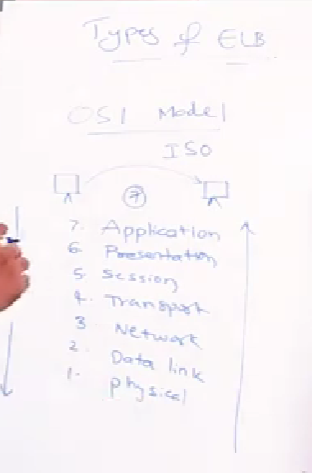 Types of ELB
OSI Model
ISO
7
7. Application
6. Presentation
5. Session
4. Transport
3 Network
2. Data link
1. physical